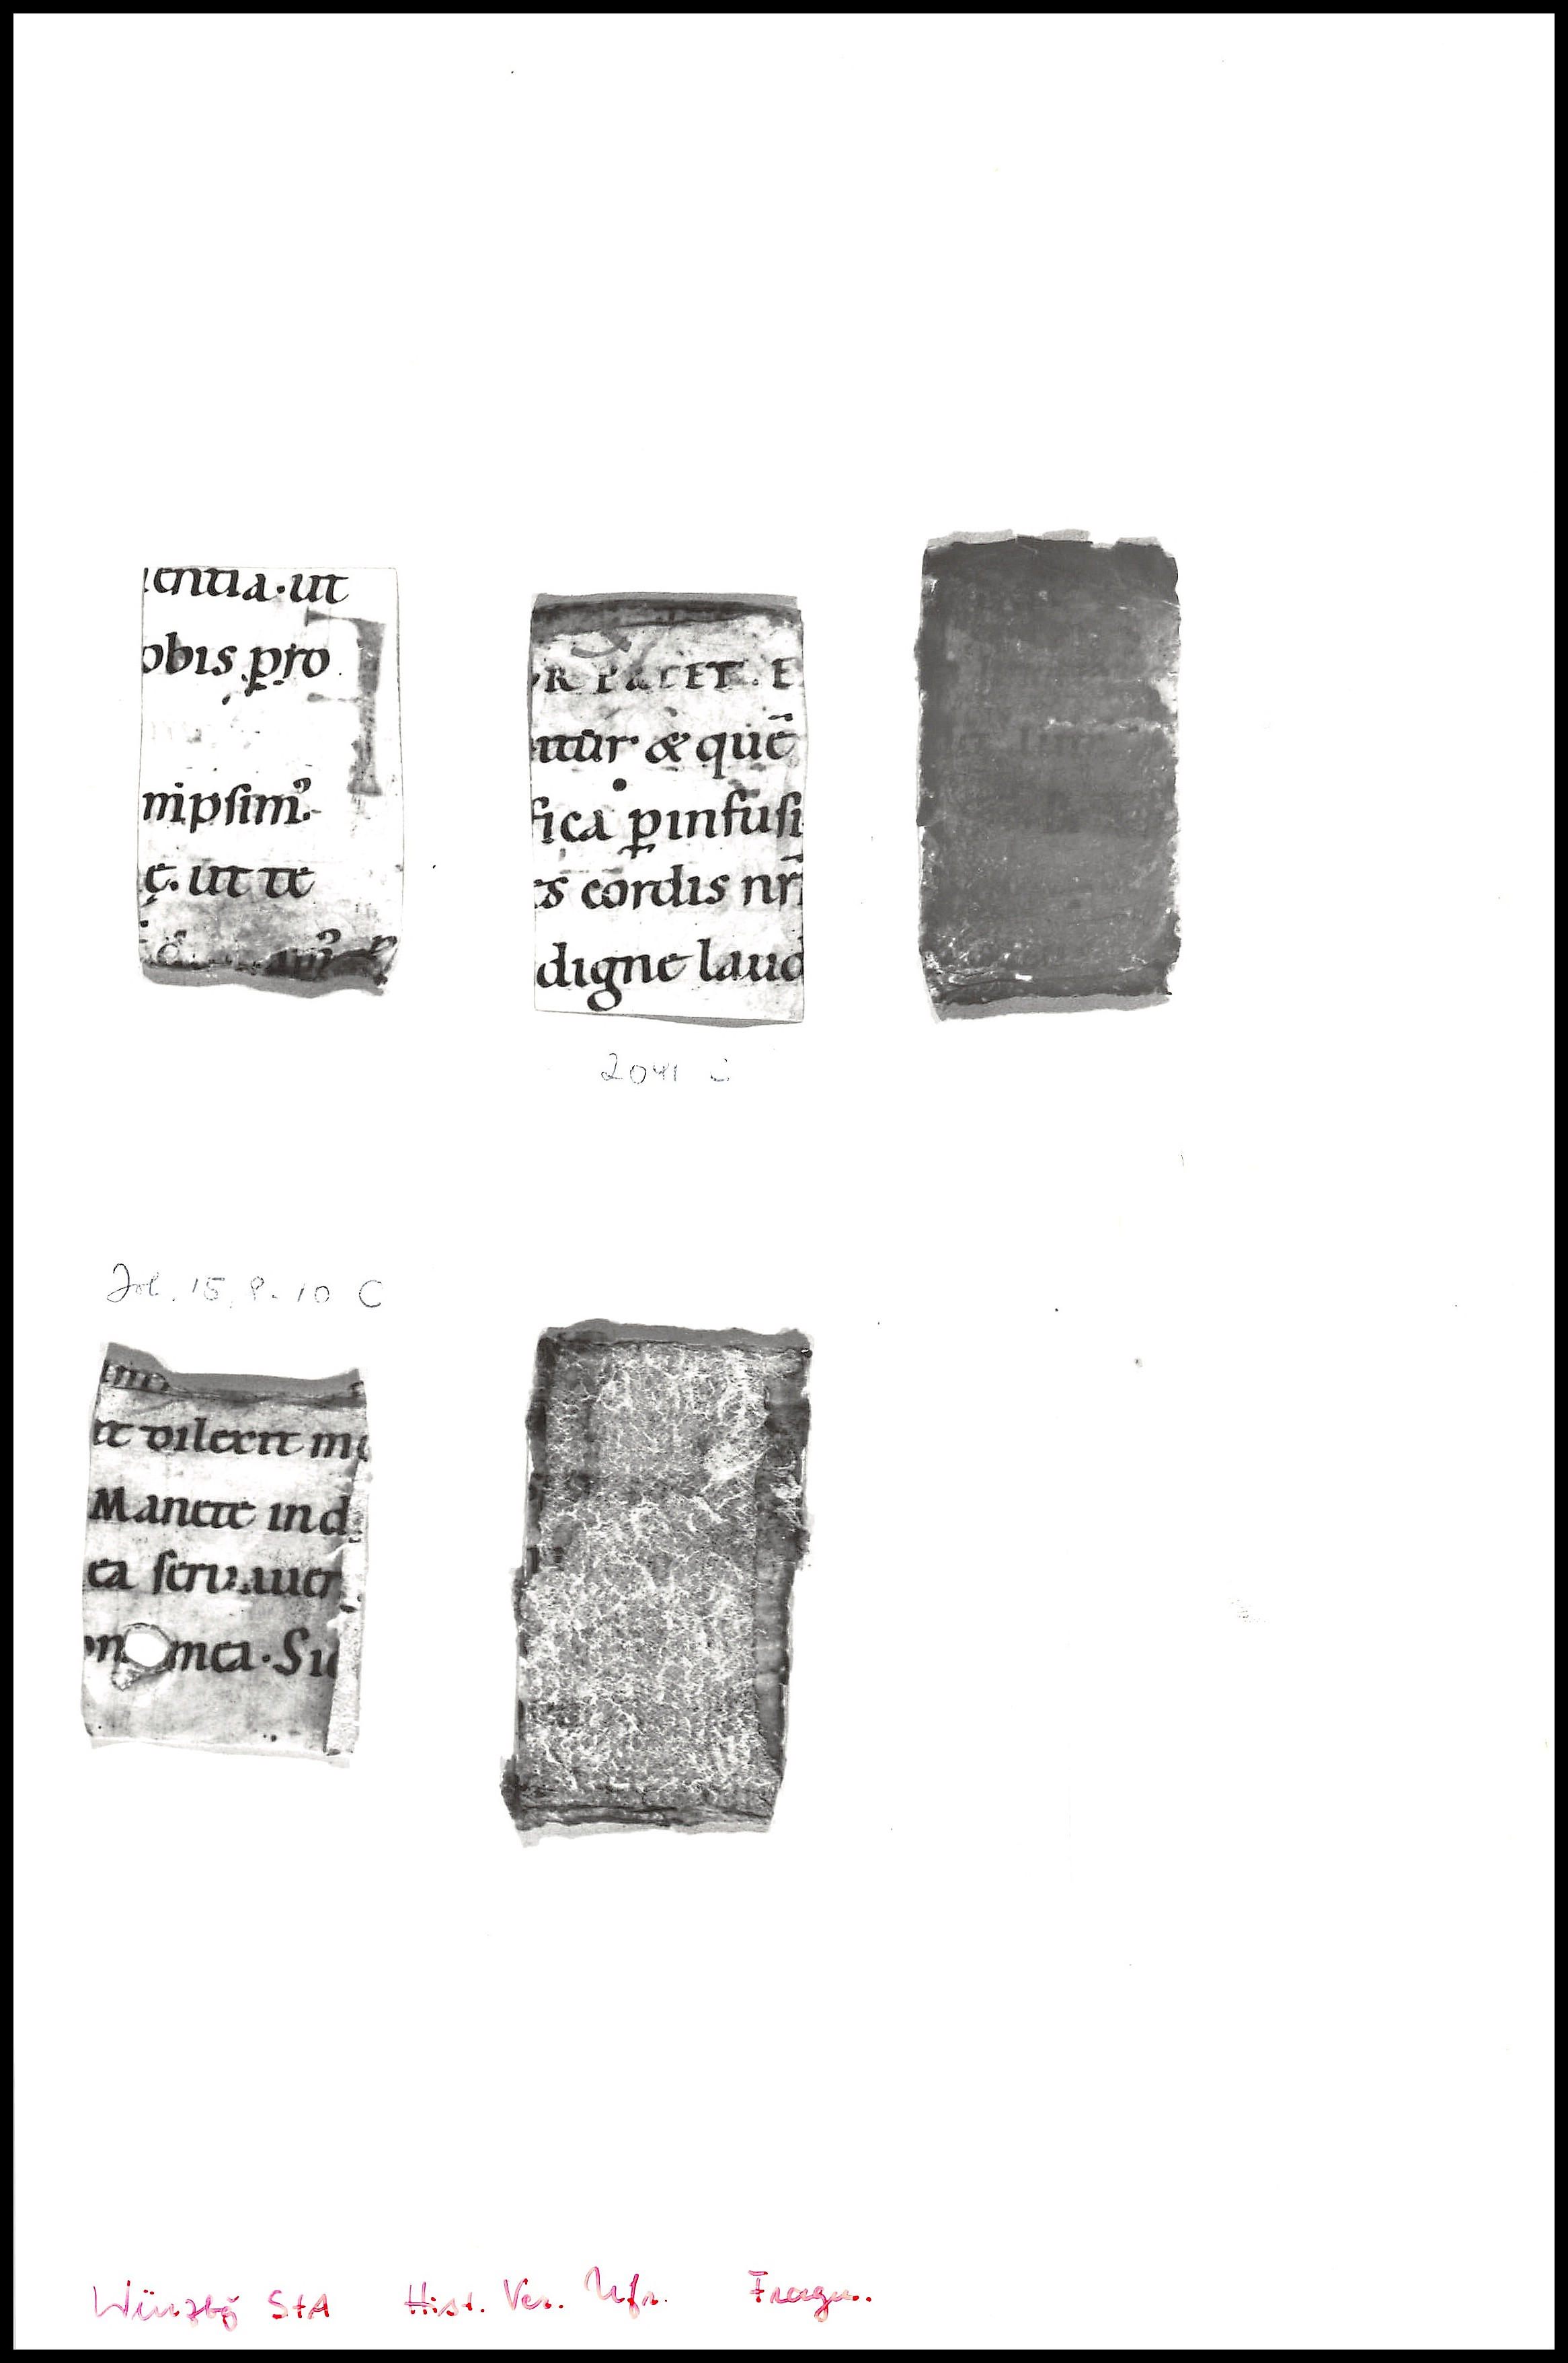 entia·ut
obis pro
mpsim᷒.
ę. ut te
R PACET. E
ntur & quē
fica ꝑ infusi
s cordis nr̄i
digne laud
2041
Joh. 15, 9-10 C
it dilexit me
Manete in d
ea servaver
mea. Sic
Würzbg StA Hist. Ver. Ufr. Fragm.